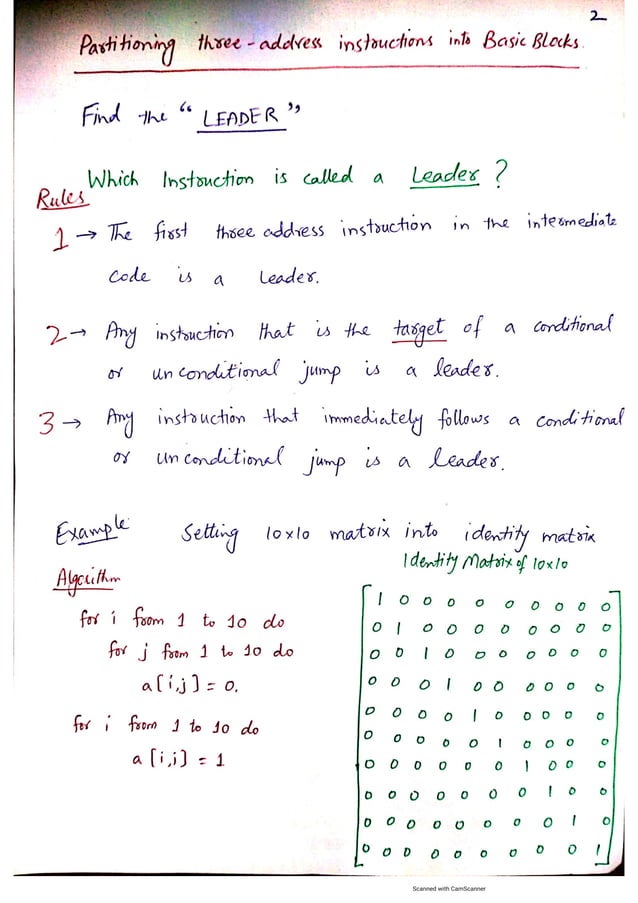 2
Partitioning three-address instructions into Basic Blocks.
Find the "LEADER"
Which Instruction is called a Leader?
Rules
1 → The first three address instruction in the intermediate
code is a Leader.
2 → Any instruction that is the target of a conditional
or unconditional jump is a leader.
3 → Any instruction that immediately follows a conditional
or unconditional jump is a leader.
Example Setting 10x10 matrix into identity matrix
Identity Matrix of 10x10
Algorithm
for i from 1 to 10 do
for j from 1 to 10 do
a[i,j] = 0.
for i from 1 to 10 do
a[i,i] = 1
1 0 0 0 0 0 0 0 0 0
0 1 0 0 0 0 0 0 0 0
0 0 1 0 0 0 0 0 0 0
0 0 0 1 0 0 0 0 0 0
0 0 0 0 1 0 0 0 0 0
0 0 0 0 0 1 0 0 0 0
0 0 0 0 0 0 1 0 0 0
0 0 0 0 0 0 0 1 0 0
0 0 0 0 0 0 0 0 1 0
0 0 0 0 0 0 0 0 0 1
Scanned with CamScanner